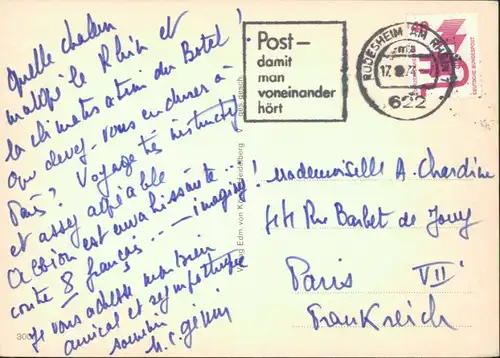 Quelle chaleur
malgré le Rhin et
la climatisation du Botel!
Que devez-vous endurer à
Paris? Voyage très instructif
et assez agréable
Albion est envahissante...
contre 8 français --- imaginez!
Je vous adresse mon bien
amical et sympathique
souvenir
Post-
damit
man
voneinander
hört
RÜDESHEIM AM RHEIN
622
DEUTSCHE BUNDESPOST
Verlag Edm. von König, Heidelberg
ges. gesch.
300
Mademoiselle A. Chardine
44 Rue Barbet de Jouy
Paris VII
Frankreich